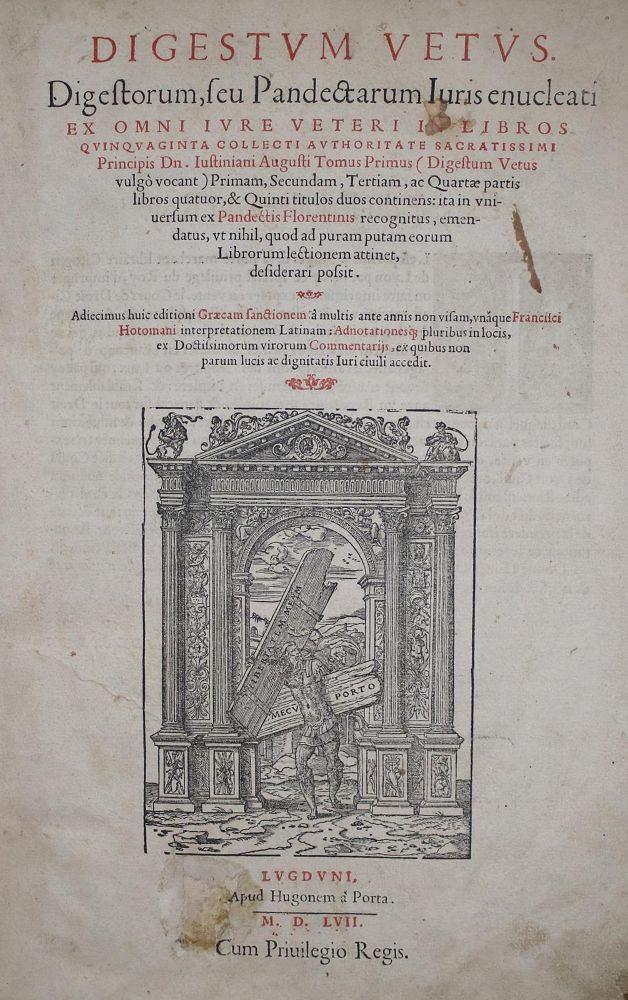 DIGESTVM VETVS.
Digestorum, seu Pandectarum Iuris enucleati
EX OMNI IVRE VETERI IN LIBROS
QVINQVAGINTA COLLECTI AVTHORITATE SACRATISSIMI
Principis Dn. Iustiniani Augusti Tomus Primus (Digestum Vetus
vulgò vocant) Primam, Secundam, Tertiam, ac Quartæ partis
libros quatuor, & Quinti titulos duos continens: ita in vni-
uersum ex Pandectis Florentinis recognitus, emen-
datus, vt nihil, quod ad puram putam eorum
Librorum lectionem attinet,
desiderari possit.
Adiecimus huic editioni Græcam sanctionem à multis ante annis non visam, vnáque Francisci
Hotomani interpretationem Latinam: Adnotationesq; pluribus in locis,
ex Doctissimorum virorum Commentarijs, ex quibus non
parum lucis ac dignitatis Iuri ciuili accedit.
LIBERTATEM MEAM
MECV PORTO
LVGDVNI,
Apud Hugonem à Porta.
M. D. LVII.
Cum Priuilegio Regis.